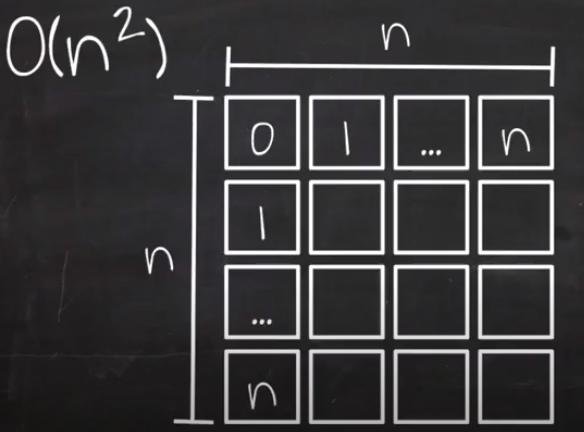 O(n²)
n
0 1 ... n
1
n
...
n